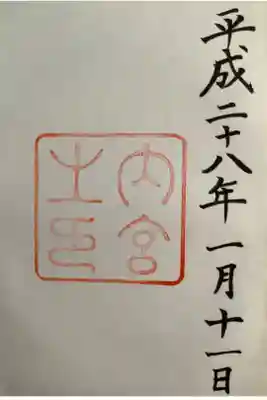 平成二十八年一月十一日
内宮
之印